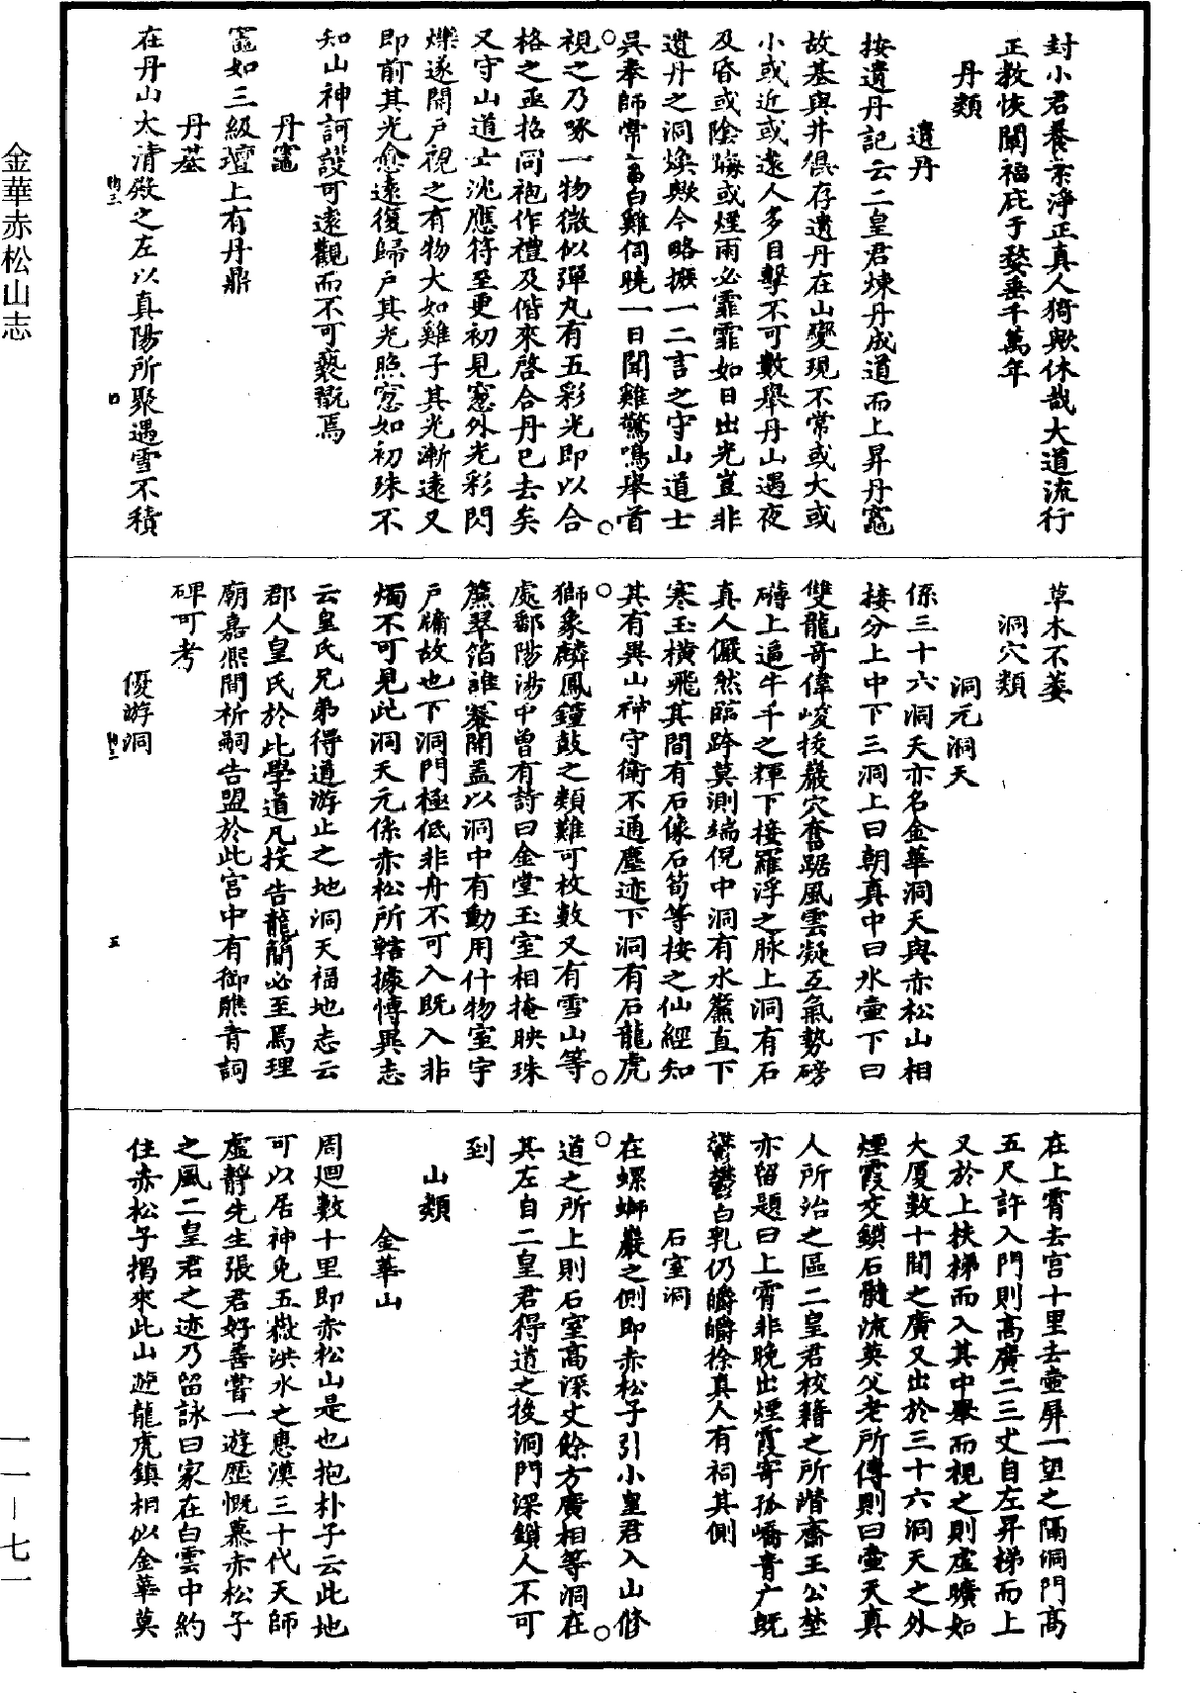 金華赤松山志
封小君養素淨正真人猗歟休哉大道流行
正教恢闡福庇于婺垂千萬年
丹類
遺丹
按遺丹記云二皇君煉丹成道而上昇丹竈
故基與井俱存遺丹在山變現不常或大或
小或近或遠人多目擊不可數舉丹山遇夜
及昏或陰晦或煙雨必霏霏如日出光豈非
遺丹之洞煥歟今略摭一二言之守山道士
吳奉師常畜白雞伺曉一日聞雞驚鳴舉首
視之乃啄一物微似彈丸有五彩光即以合
格之亟招同袍作禮及偕來啓合丹已去矣
又守山道士沈應符至更初見窓外光彩閃
爍遂開戶視之有物大如雞子其光漸遠又
即前其光愈遠復歸戶其光照窓如初殊不
知山神訶護可遠觀而不可褻翫焉
丹竈
竈如三級壇上有丹鼎
丹基
在丹山大清殿之左以真陽所聚遇雪不積
草木不萎
洞穴類
洞元洞天
係三十六洞天亦名金華洞天與赤松山相
接分上中下三洞上曰朝真中曰氷壺下曰
雙龍奇偉峻拔巖穴奮踞風雲凝互氣勢磅
礴上逼牛千之輝下接羅浮之脉上洞有石
真人儼然臨跨莫測端倪中洞有水簾直下
寒玉橫飛其間有石像石筍等按之仙經知
其有異山神守衛不通塵迹下洞有石龍虎
獅象麟鳳鐘鼓之類難可枚數又有雪山等
處鄱陽湯中曾有詩曰金堂玉室相掩映珠
簾翠箔誰褰開盖以洞中有動用什物室宇
戶牖故也下洞門極低非舟不可入既入非
燭不可見此洞天元係赤松所轄據博異志
云皇氏兄弟得道游止之地洞天福地志云
郡人皇氏於此學道凡投告龍簡必至焉理
廟嘉熙間祈嗣告盟於此宮中有御醮青詞
碑可考
優游洞
在上霄去宮十里去壺屏一望之隔洞門高
五尺許入門則高廣二三丈自左昇梯而上
又於上扶梯而入其中舉而視之則虛曠如
大厦數十間之廣又出於三十六洞天之外
煙霞交鎖石髓流英父老所傳則曰壺天真
人所治之區二皇君校籍之所潛齋王公埜
亦留題曰上霄非晚出煙霞寄孤嶠青广既
欝鬱白乳仍皭皭徐真人有祠其側
石室洞
在螺螄巖之側即赤松子引小皇君入山修
道之所上則石室高深丈餘方廣相等洞在
其左自二皇君得道之後洞門深鎖人不可
到
山類
金華山
周廻數十里即赤松山是也抱朴子云此地
可以居神免五嶽洪水之患漢三十代天師
虛靜先生張君好善嘗一遊歷慨慕赤松子
之風二皇君之迹乃留詠曰家在白雲中約
住赤松子揭來此山遊龍虎鎮相似金華莫
一一－七一